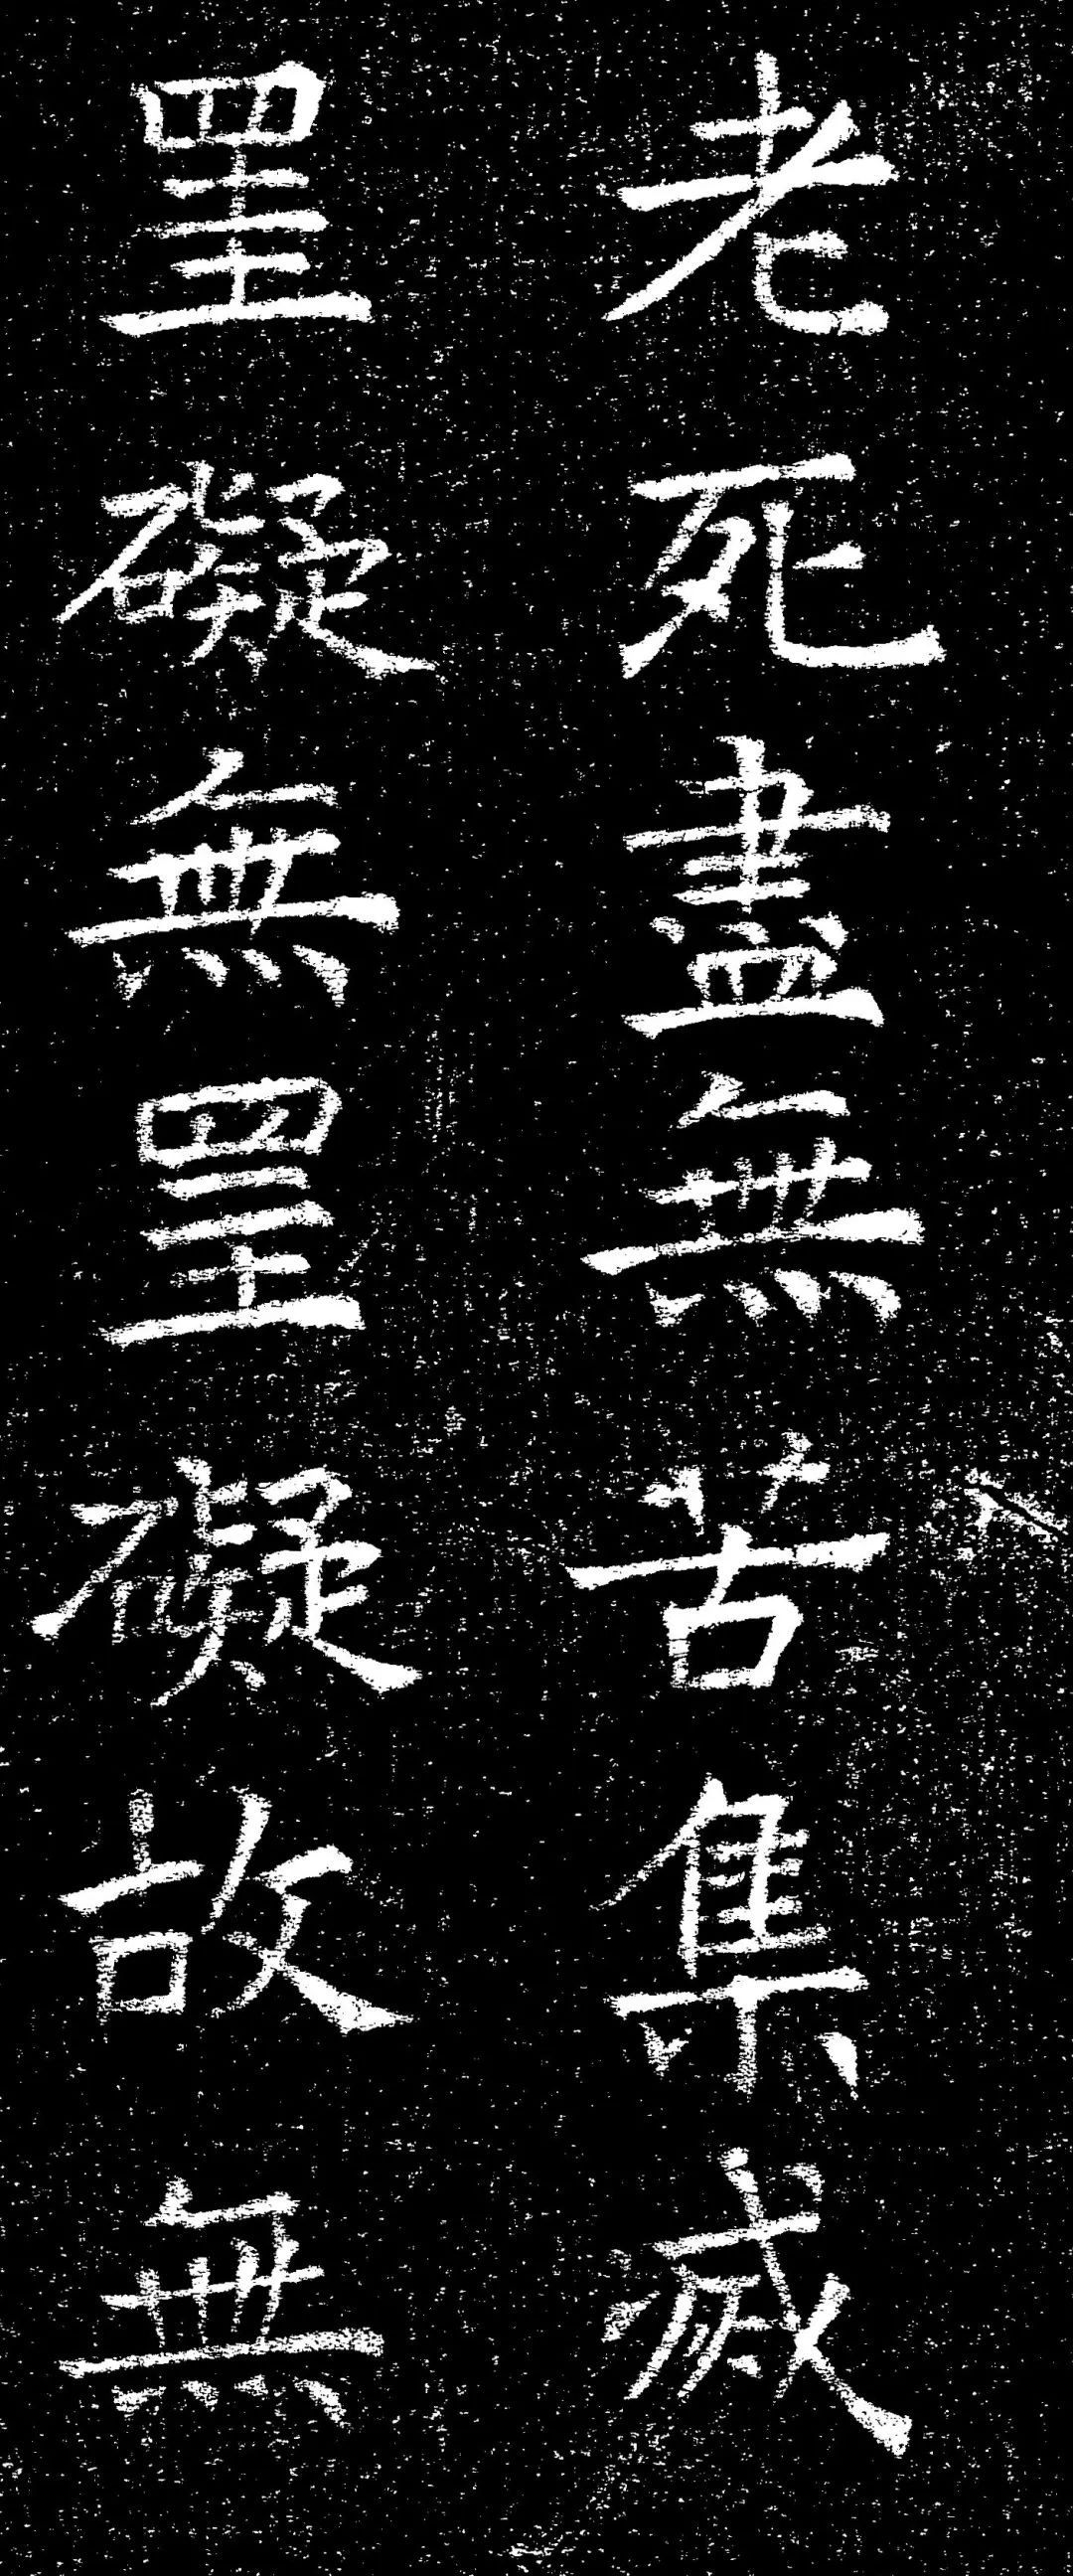 老死盡無苦集滅
罣礙無罣礙故無